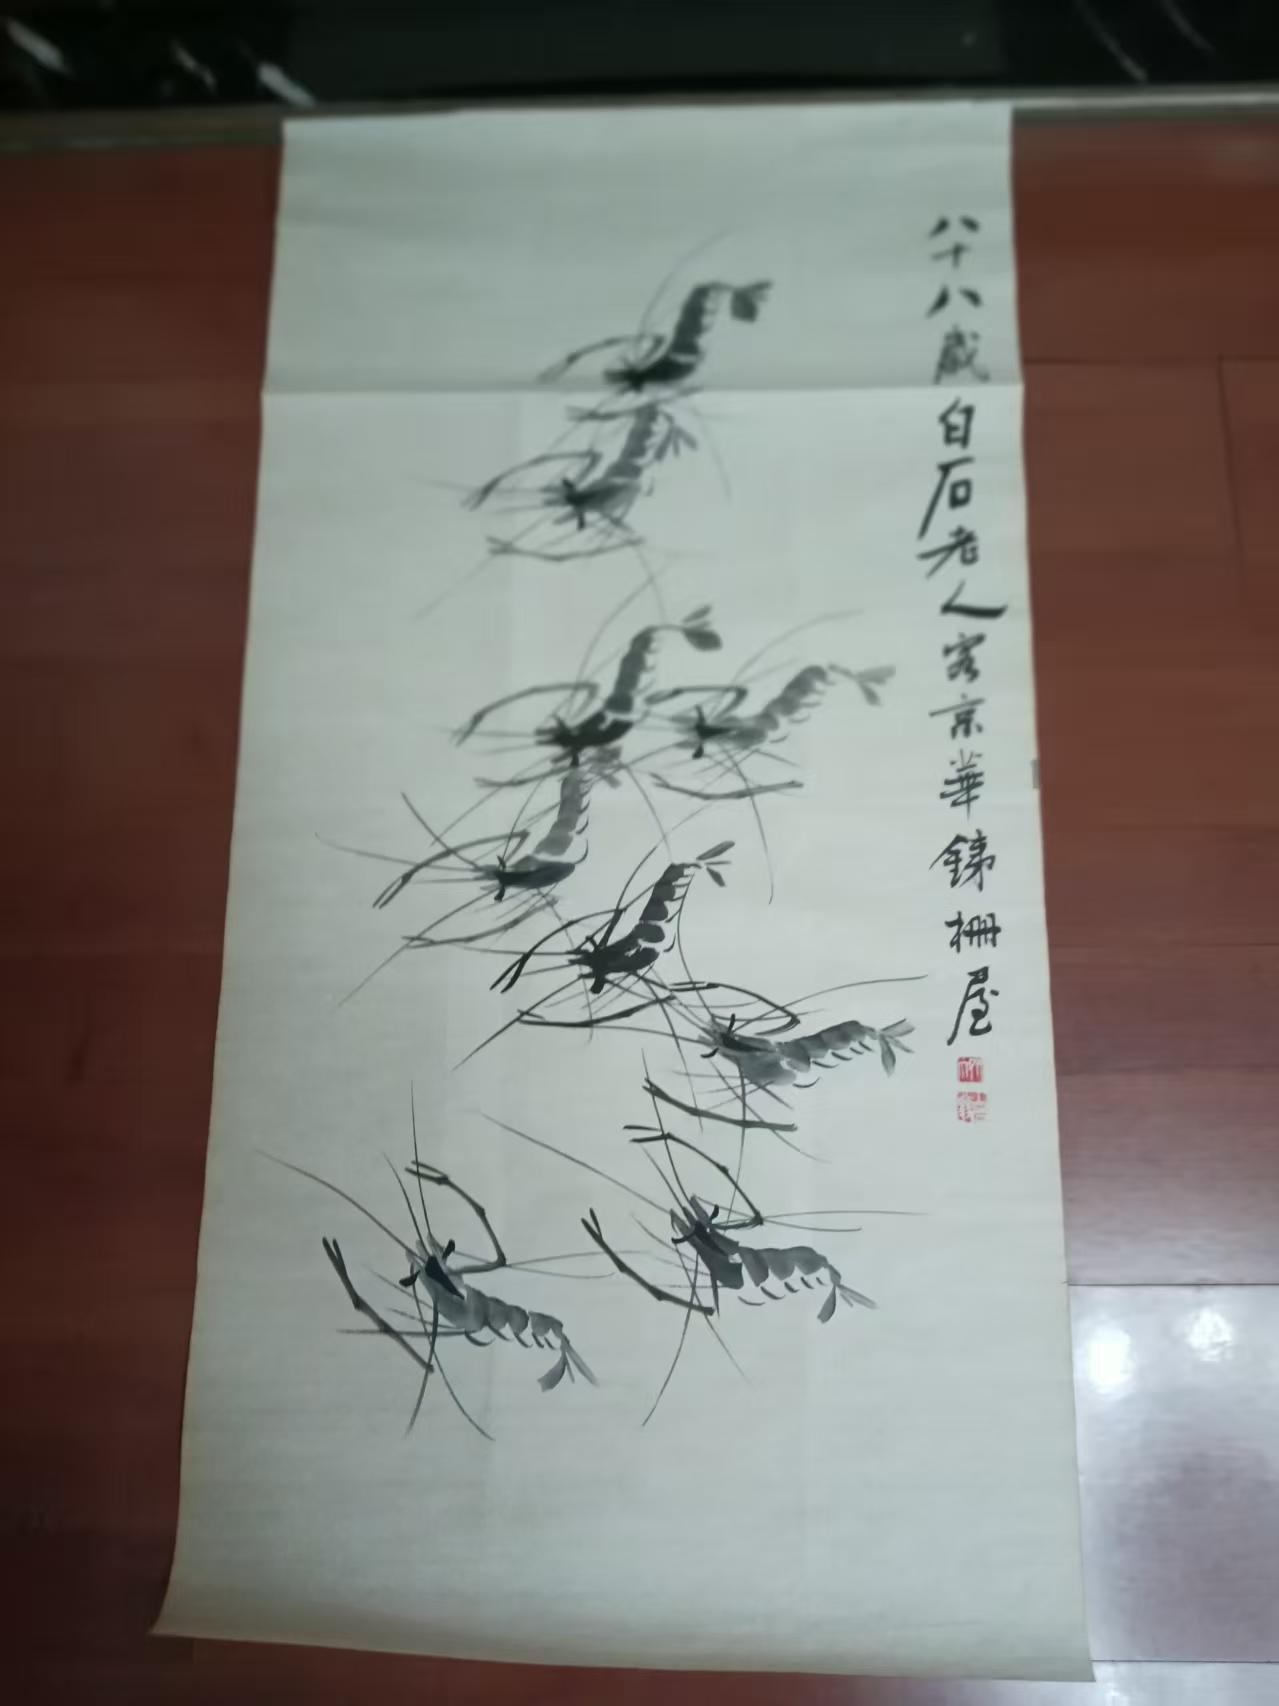 八十八歲白石老人客京華鐵柵屋